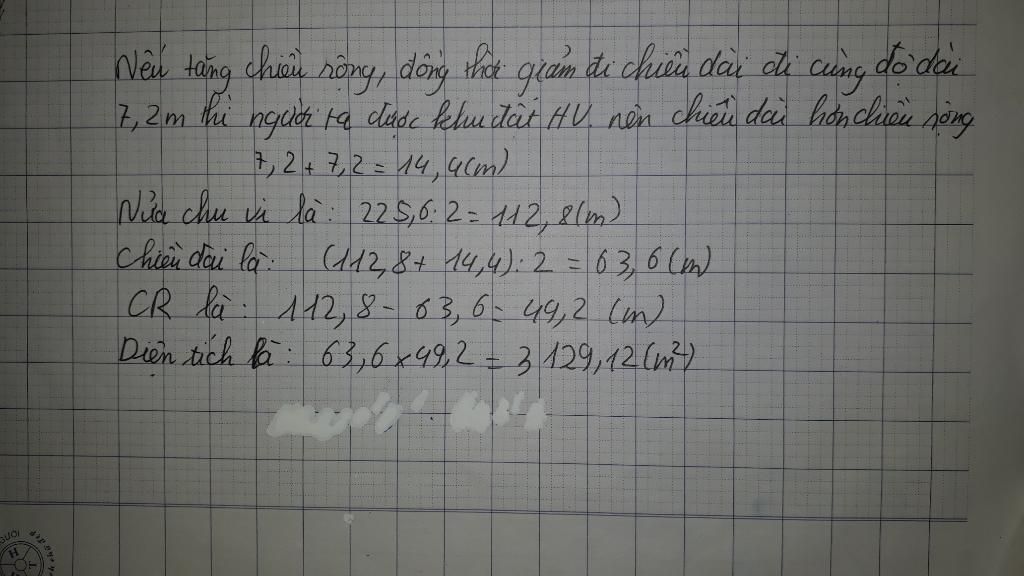 Nếu tăng chiều rộng, đồng thời giảm đi chiều dài đi cùng độ dài
7,2m thì người ta được khu đất HV. nên chiều dài hơn chiều rộng
7,2 + 7,2 = 14,4(m)
Nửa chu vi là: 225,6: 2 = 112,8(m)
Chiều dài là: (112,8 + 14,4): 2 = 63,6(m)
CR là: 112,8 - 63,6 = 49,2 (m)
Diện tích là: 63,6 x 49,2 = 3 129,12(m²)